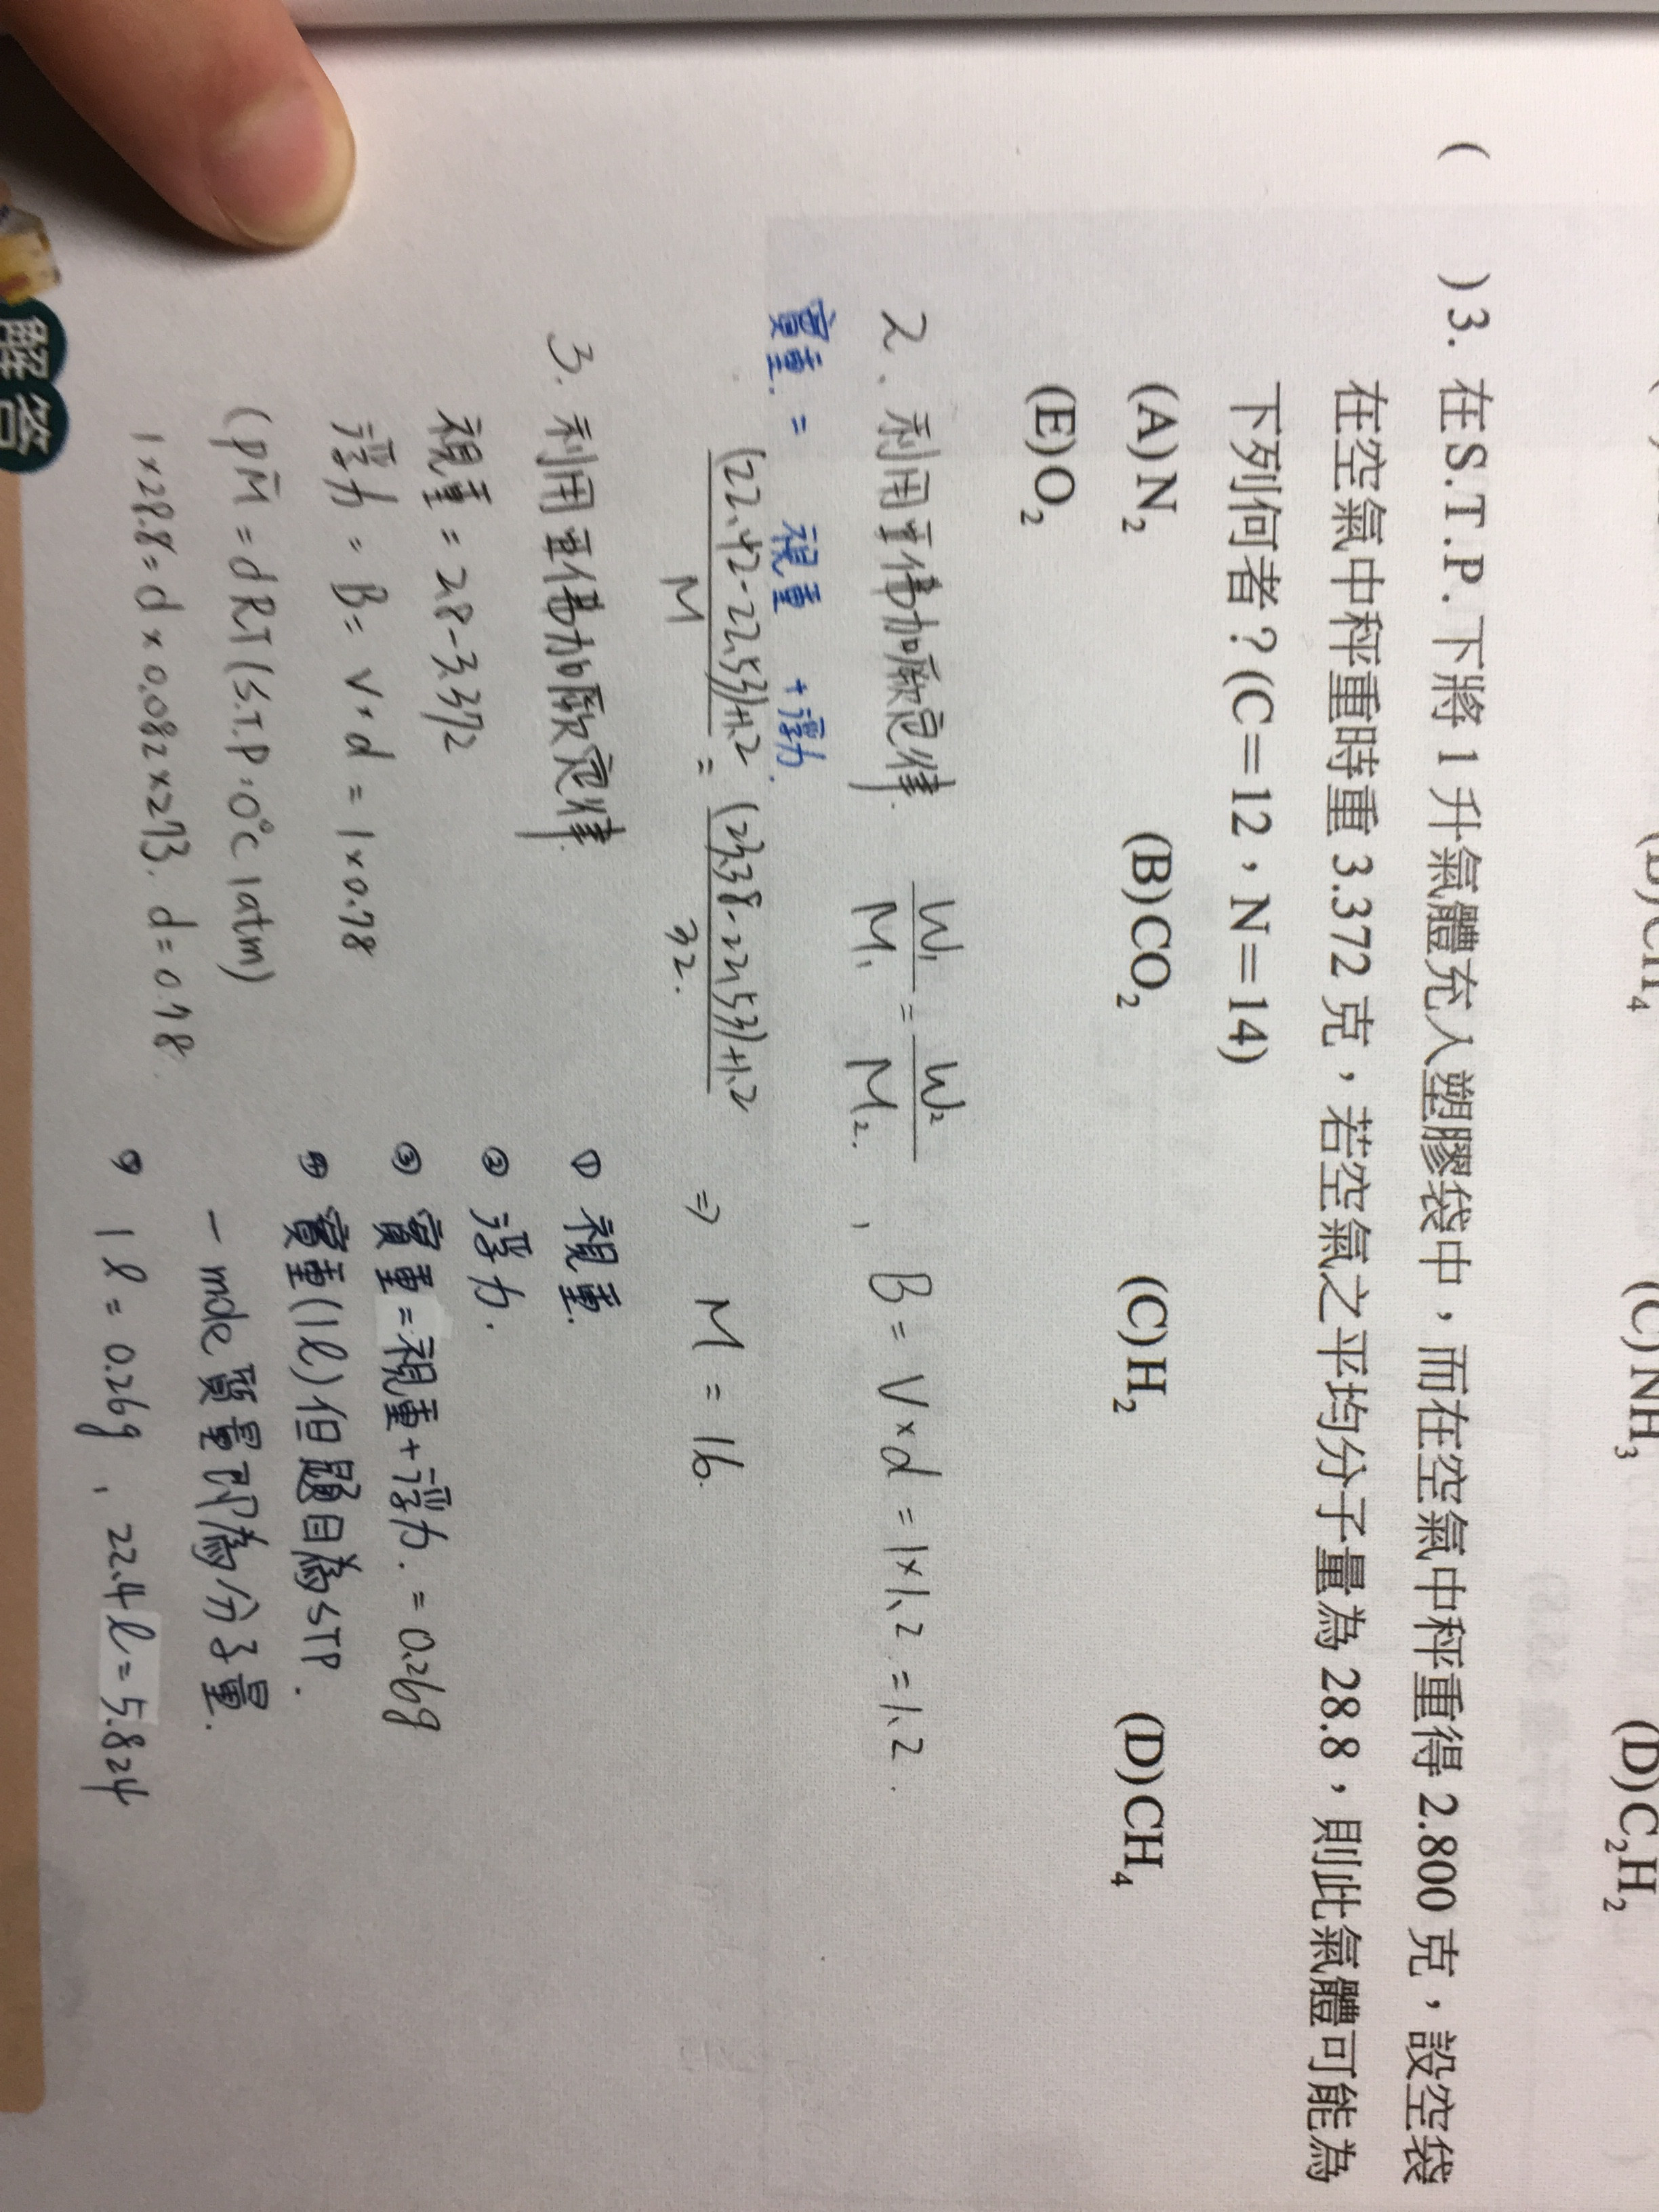 (D)CH₄ (C)NH₃ (D)C₂H₂
( )3. 在S.T.P.下將1升氣體充入塑膠袋中，而在空氣中秤重得2.800克，設空袋
在空氣中秤重時重3.372克，若空氣之平均分子量為28.8，則此氣體可能為
下列何者？(C=12，N=14)
(A)N₂ (B)CO₂ (C)H₂ (D)CH₄
(E)O₂
2. 利用亞佛加厥定律. W₁/M₁ = W₂/M₂. , B = V×d = 1×1.2 = 1.2.
實重. = 視重 + 浮力.
(22.42-22.53)+1.2/M = (23.38-22.53)+1.2/32. ⇒ M = 16.
3. 利用亞佛加厥定律.
視重 = 2.8-3.372
浮力 = B = V·d = 1×0.78
(PM = dRT (S.T.P.0°C 1atm)
1×28.8 = d×0.082×273. d = 0.78
① 視重.
② 浮力.
③ 實重 = 視重+浮力. = 0.26g
④ 實重(1ℓ)但題目為STP.
一mole質量即為分子量.
1ℓ = 0.26g , 22.4ℓ = 5.824
解答